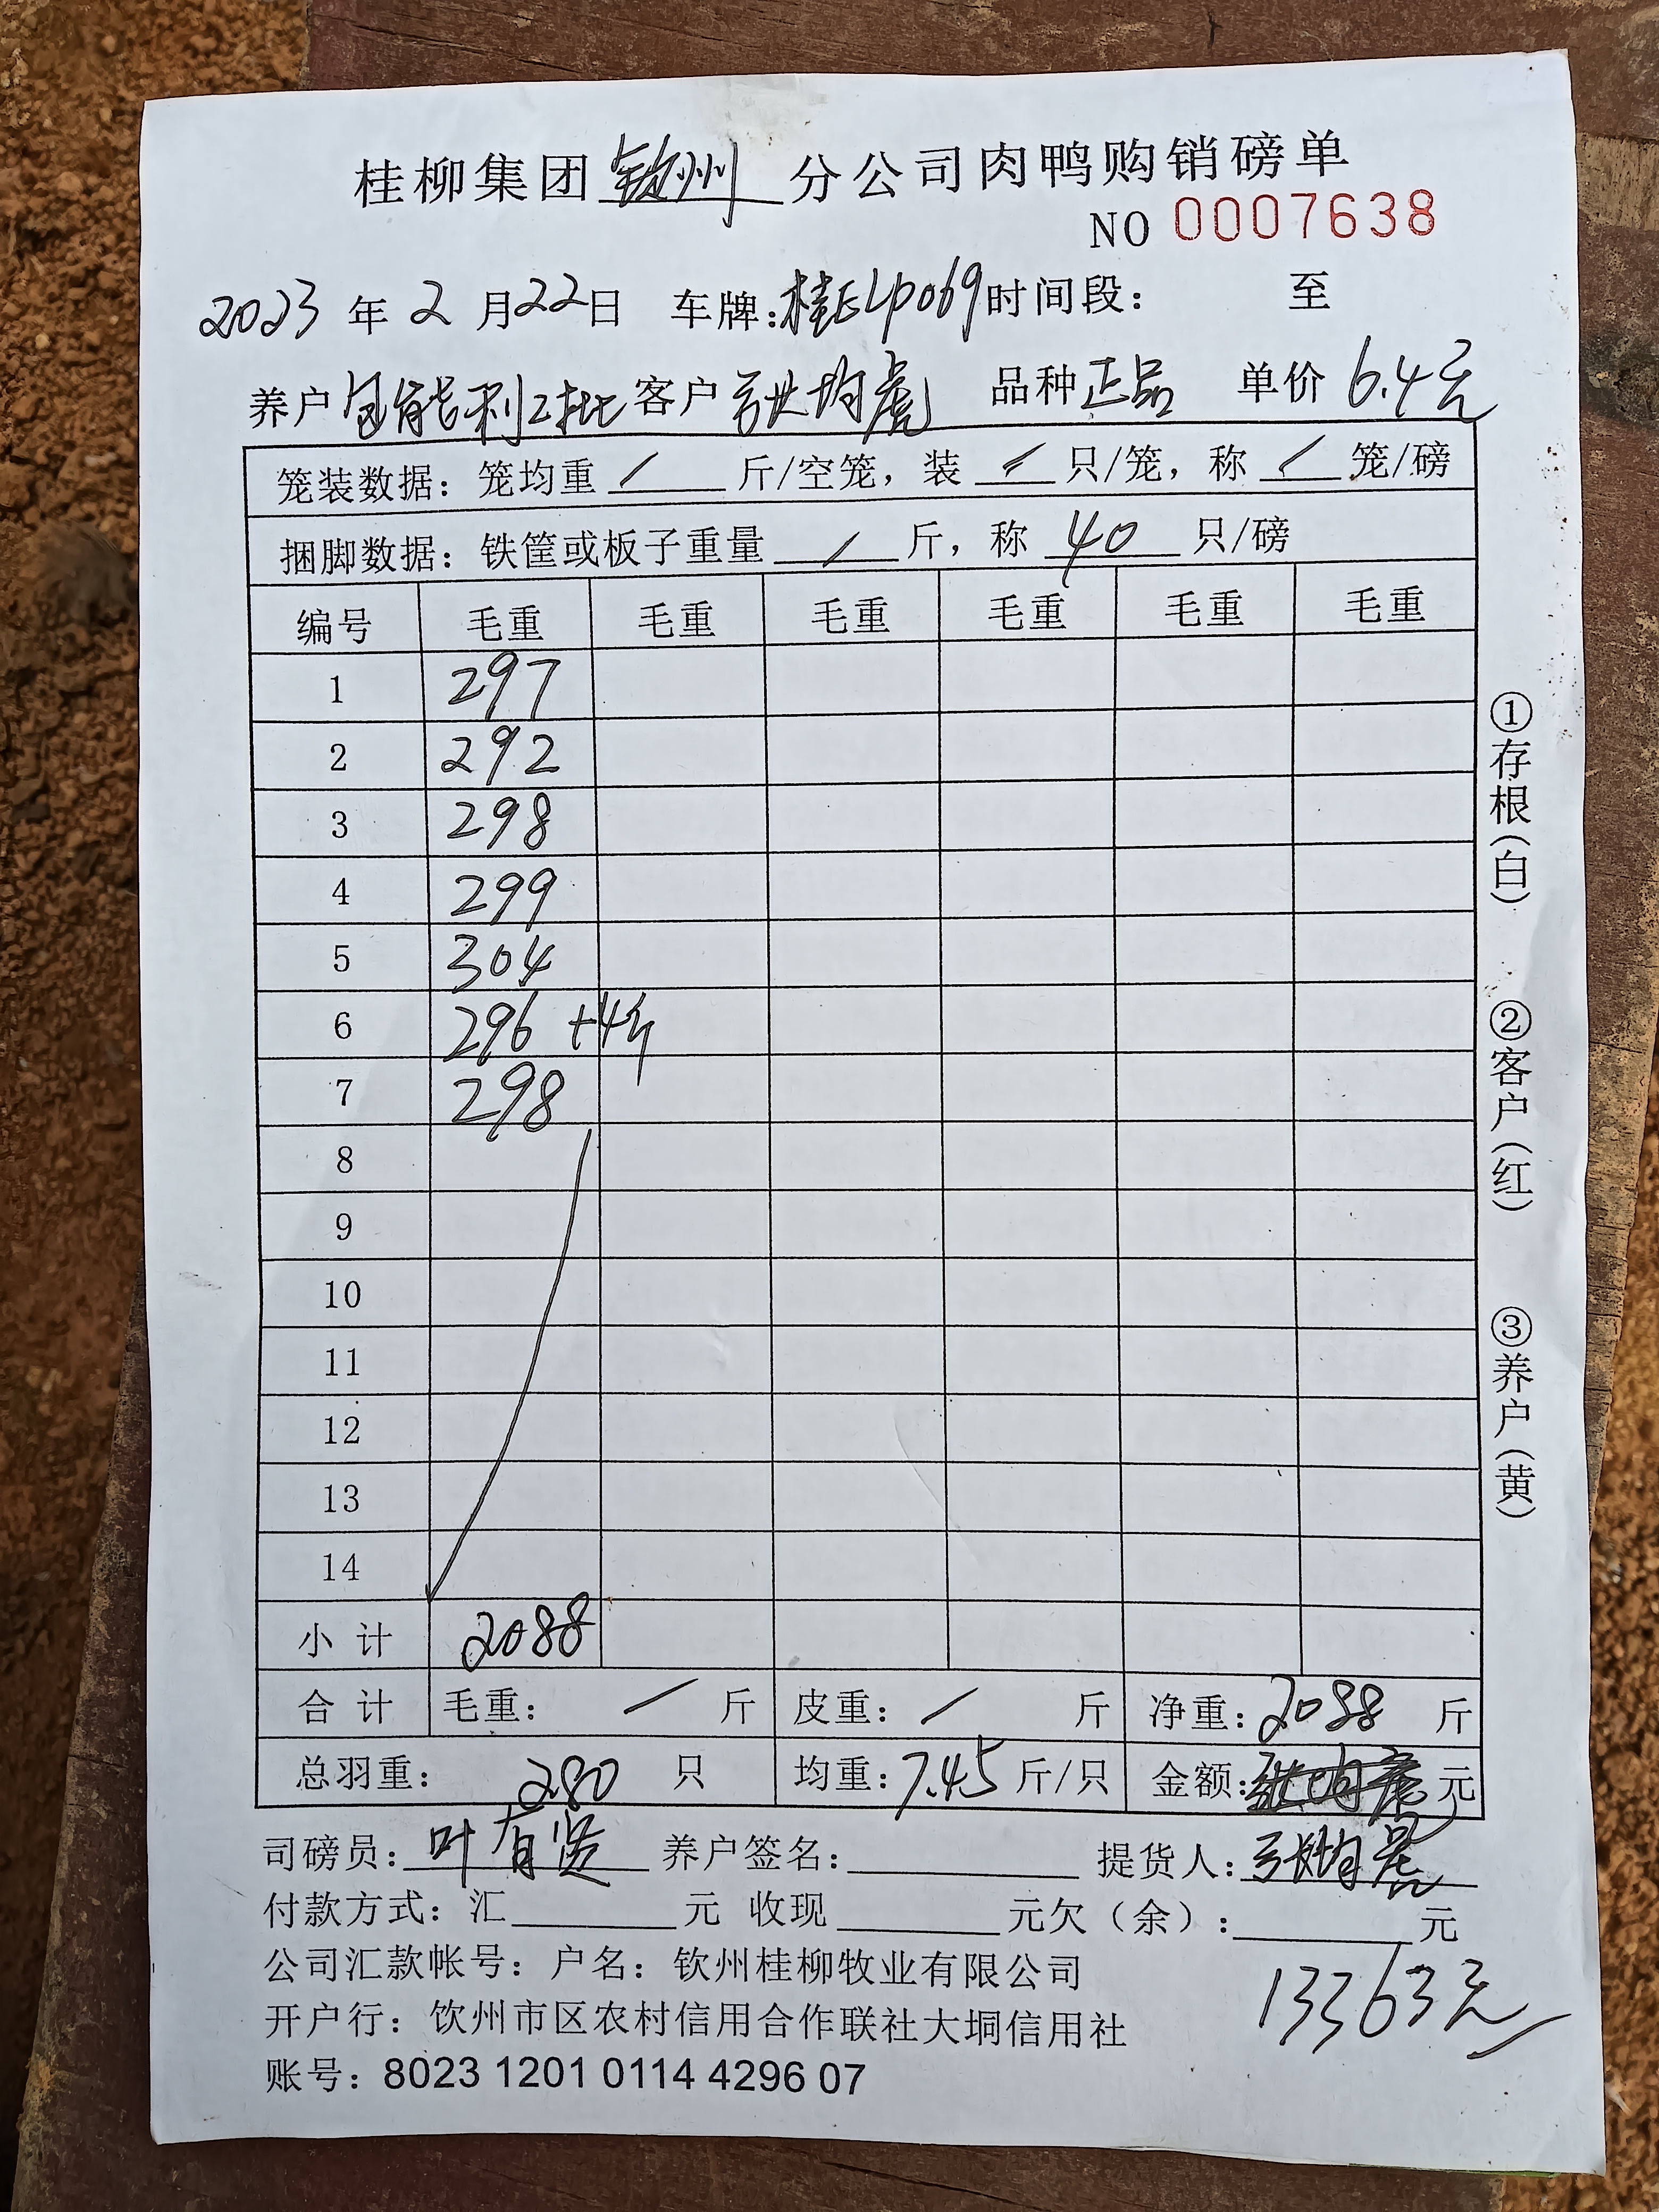 桂柳集团 钦州 分公司肉鸭购销磅单
NO 0007638
2023 年 2 月 22 日 车牌:桂ELP069 时间段: 至
养户 包能利2批 客户 张均虎 品种 正品 单价 6.4元
笼装数据:笼均重 / 斤/空笼,装 / 只/笼,称 / 笼/磅
捆脚数据:铁筐或板子重量 / 斤,称 40 只/磅
编号 毛重 毛重 毛重 毛重 毛重 毛重
1 297
2 292
3 298
4 299
5 304
6 296 +4斤
7 298
8
9
10
11
12
13
14
小计 2088
合计 毛重: / 斤 皮重: / 斤 净重: 2088 斤
总羽重: 280 只 均重: 7.45 斤/只 金额: 元
司磅员: 叶有贤 养户签名: 提货人: 张均虎
付款方式:汇 元 收现 元欠(余): 元
公司汇款帐号:户名:钦州桂柳牧业有限公司
13363元
开户行:钦州市区农村信用合作联社大垌信用社
账号:8023 1201 0114 4296 07
①存根(白)
②客户(红)
③养户(黄)